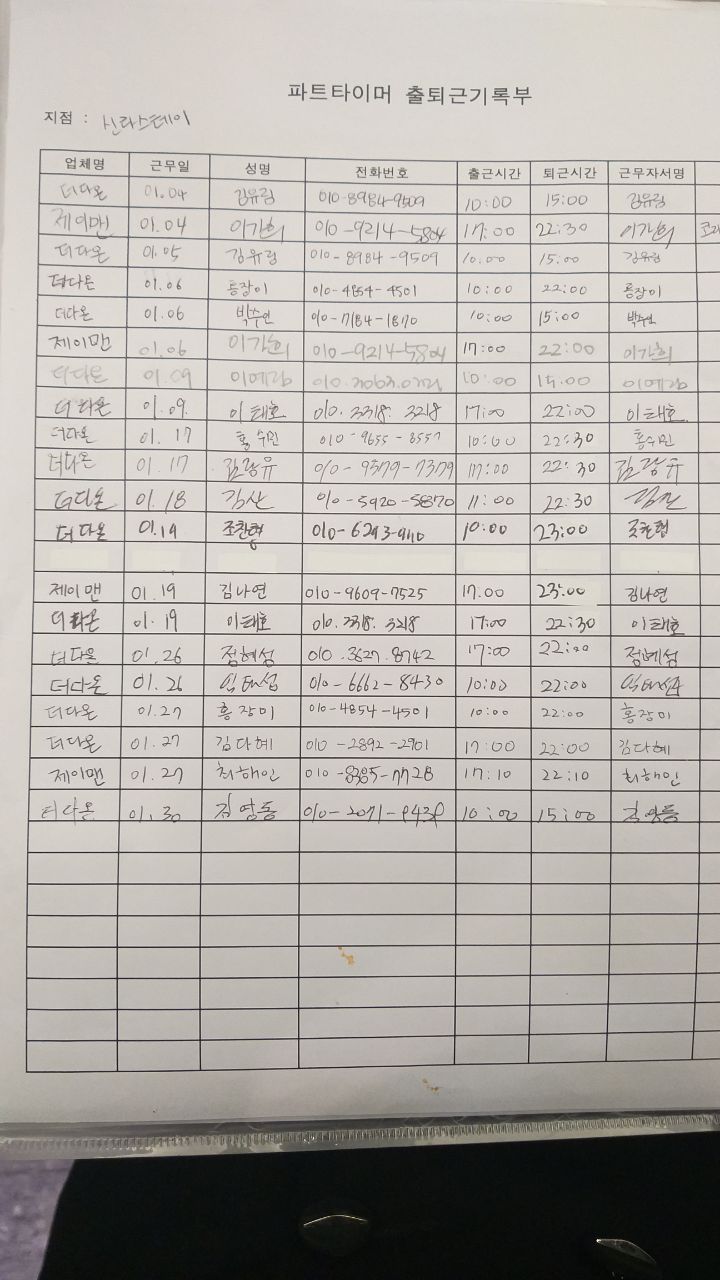 파트타이머 출퇴근기록부
지점 : 신라스테이
업체명 근무일 성명 전화번호 출근시간 퇴근시간 근무자서명
더다온 01.04 김유림 010-8984-9509 10:00 15:00 김유림
제이맨 01.04 이가희 010-9214-5804 17:00 22:30 이가희
더다온 01.05 김유림 010-8984-9509 10:00 15:00 김유림
더다온 01.06 홍장미 010-4854-4501 10:00 22:00 홍장미
더다온 01.06 박수인 010-7184-1870 10:00 15:00 박수인
제이맨 01.06 이가희 010-9214-5804 17:00 22:00 이가희
더다온 01.09 이예강 10:00 15:00 이예강
더다온 01.09. 이태호 010.3318.3218 17:00 22:00 이태호
더다온 01.17 홍수민 010-9655-8557 10:00 22:30 홍수민
더다온 01.17 김광유 010-9579-7379 17:00 22:30 김광유
더다온 01.18 김산 010-5920-5870 11:00 22:30 김산
더다온 01.19 조찬형 010-6293-9110 10:00 23:00 조찬형
제이맨 01.19 김나연 010-9609-7525 17:00 23:00 김나연
더다온 01.19 이태호 010.3318.3218 17:00 22:30 이태호
더다온 01.26 정혜성 010.3627.8742 17:00 22:00 정혜성
더다온 01.26 임태섭 010-6662-8430 10:00 22:00 임태섭
더다온 01.27 홍장미 010-4854-4501 10:00 22:00 홍장미
더다온 01.27 김다혜 010-2892-2901 17:00 22:00 김다혜
제이맨 01.27 최해인 010-8385-7728 17:10 22:10 최해인
더다온 01.30 김영동 10:00 15:00 김영동